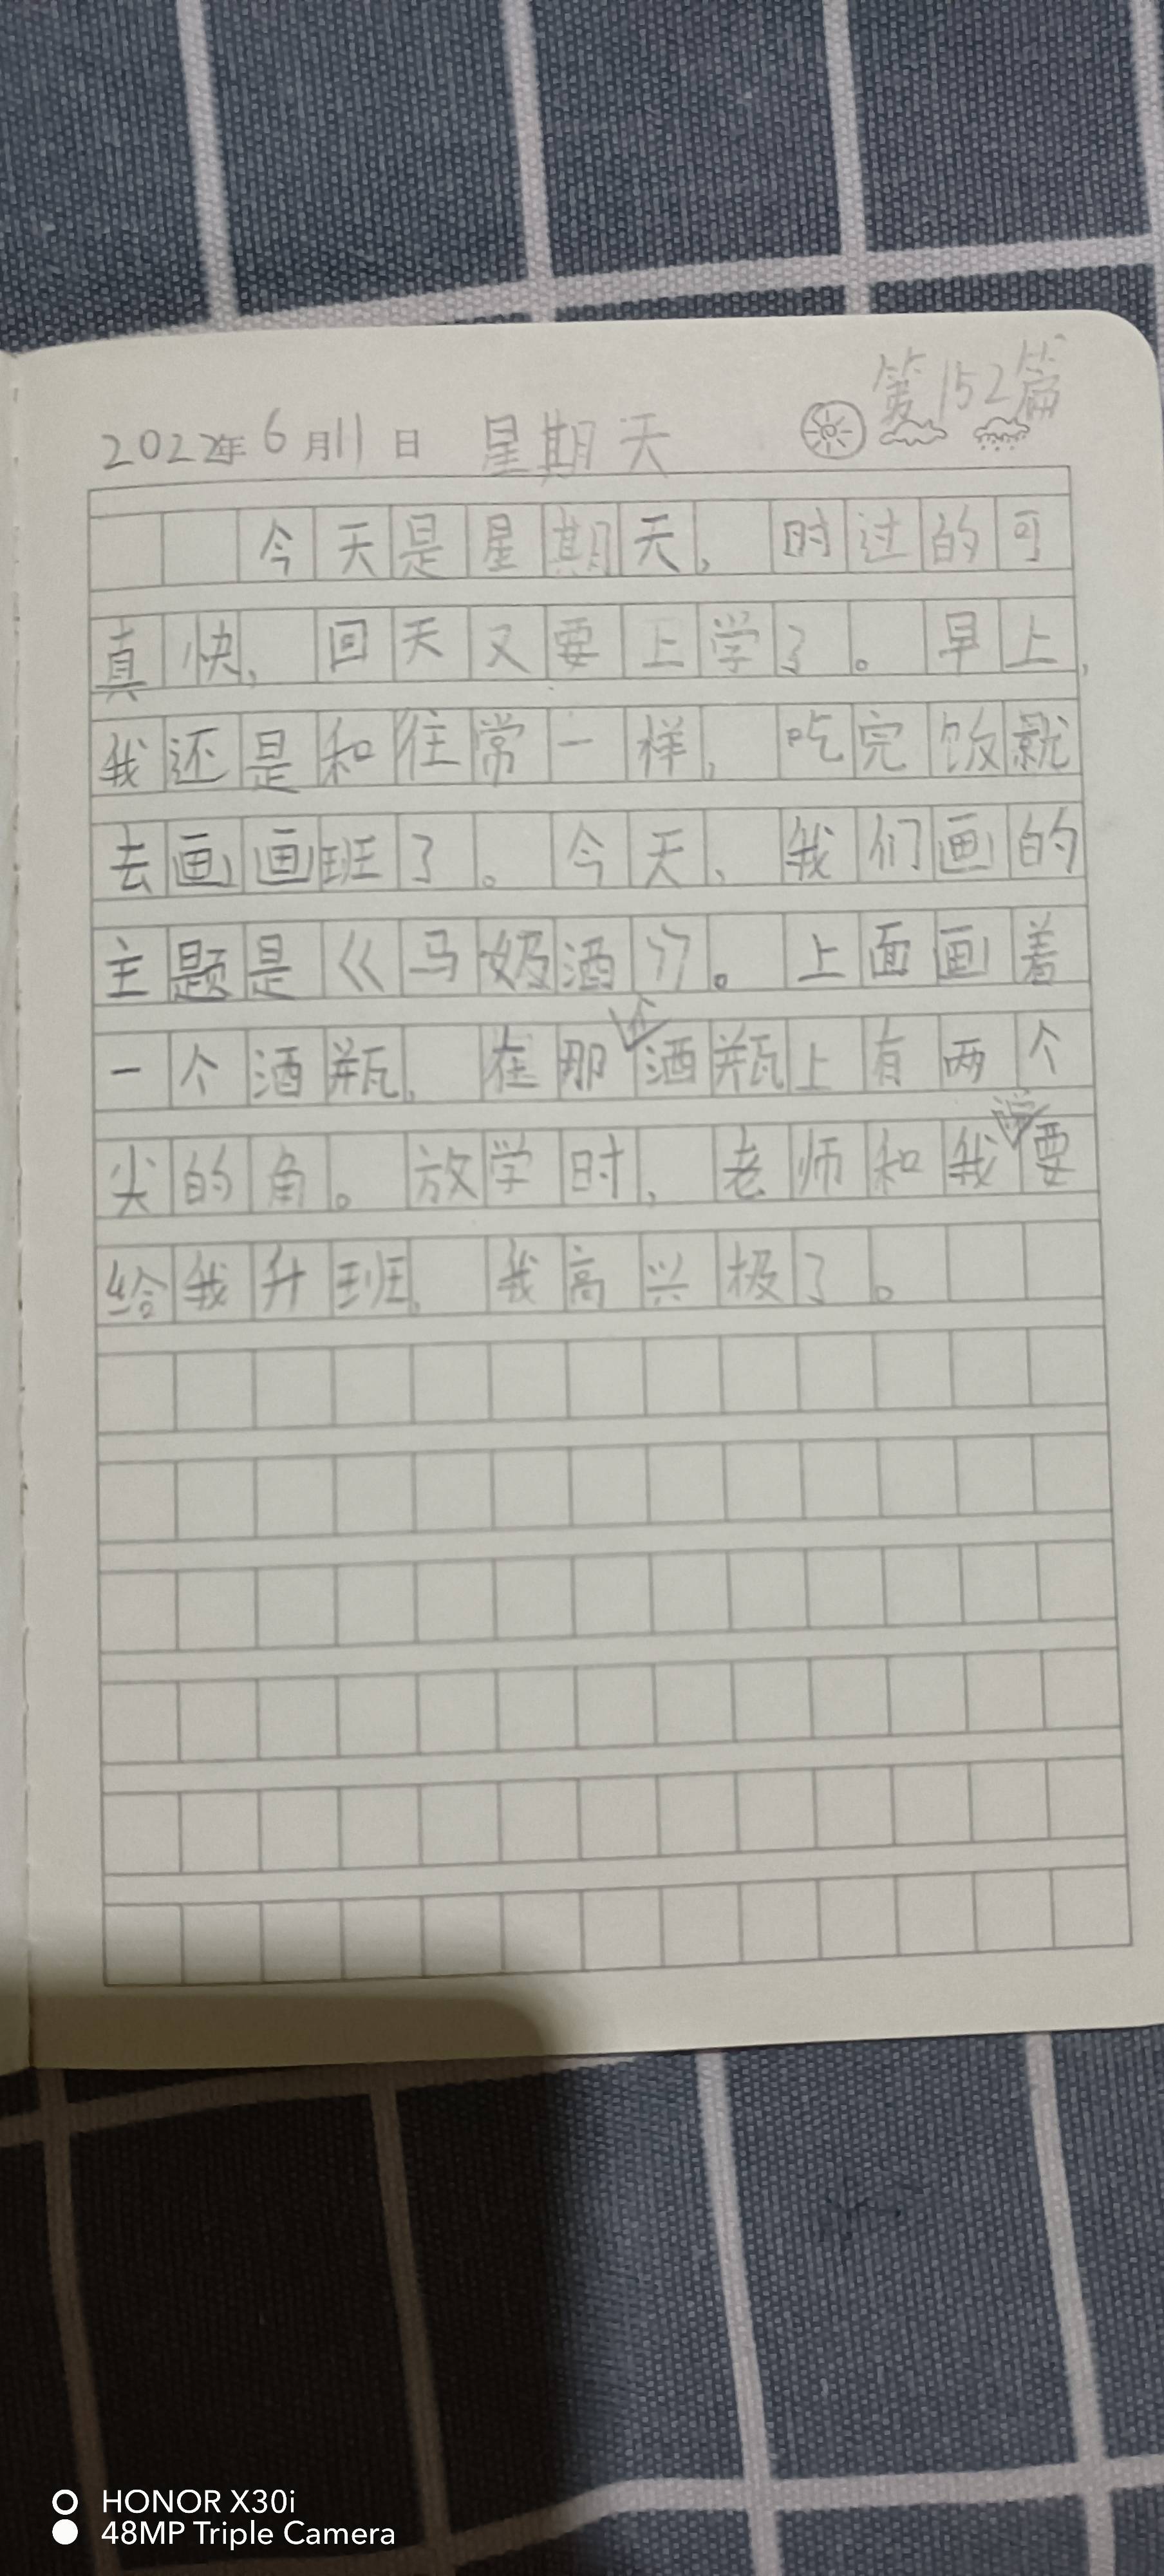 第152篇
2022年6月11日 星期天
今天是星期天，时过的可
真快，回天又要上学了。早上，
我还是和往常一样，吃完饭就
去画画班了。今天，我们画的
主题是《马奶酒》。上面画着
一个酒瓶，在那个酒瓶上有两个
尖的角。放学时，老师和我说要
给我升班，我高兴极了。
HONOR X30i
48MP Triple Camera